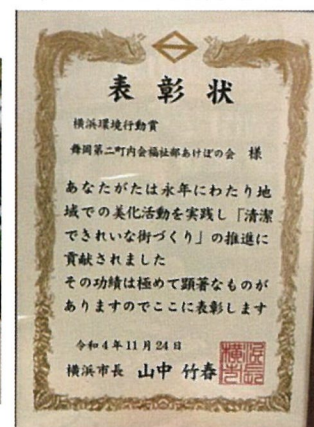 表彰状
横浜環境行動賞
舞岡第二町内会福祉部あけぼの会 様
あなたがたは永年にわたり地
域での美化活動を実践し「清潔
できれいな街づくり」の推進に
貢献されました
その功績は極めて顕著なものが
ありますのでここに表彰します
令和4年11月24日
横浜市長 山中 竹春